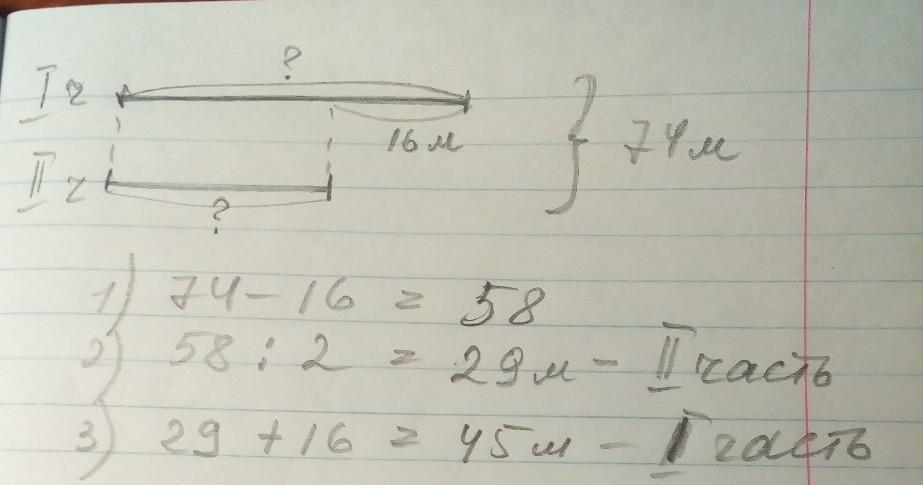 ?
I ч
16 м
} 74 м
II ч
?
1) 74 - 16 = 58
2) 58 : 2 = 29 м - II часть
3) 29 + 16 = 45 м - I часть